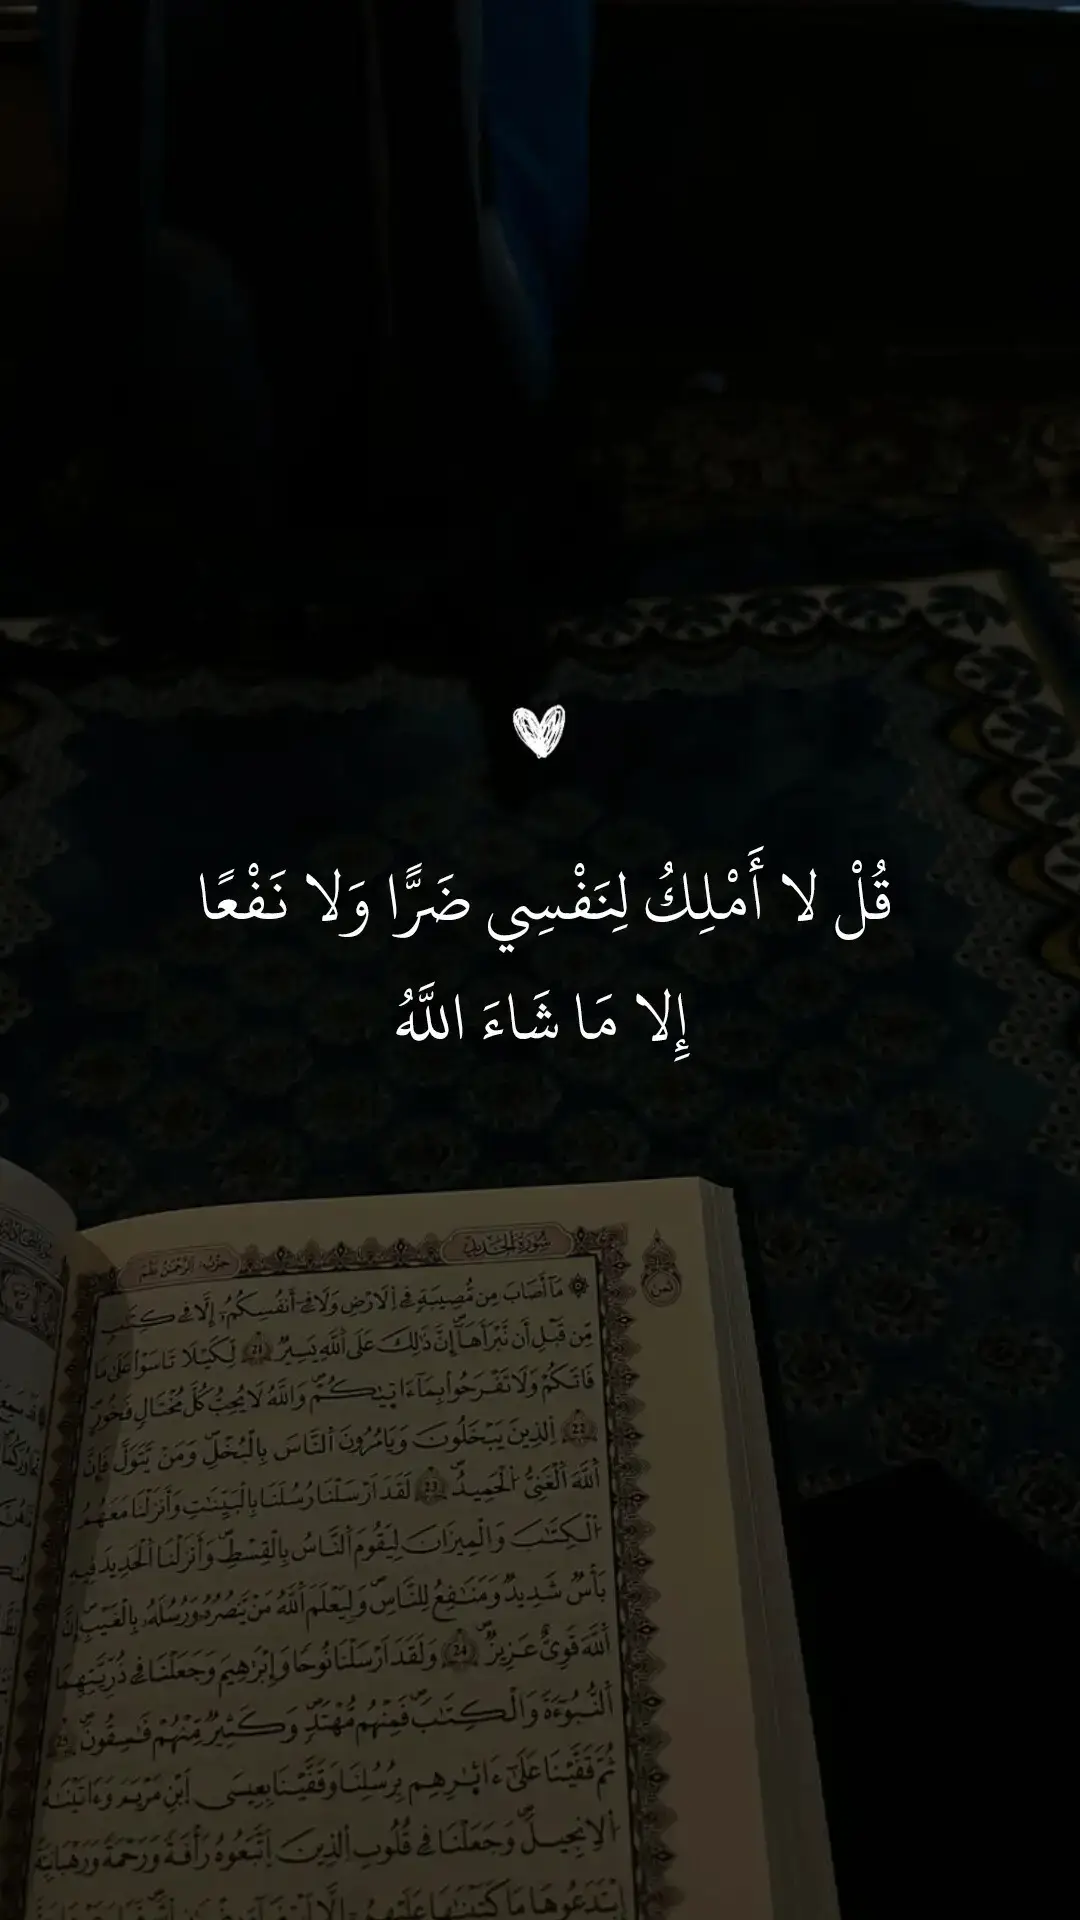 قُلْ لا أَمْلِكُ لِنَفْسِي ضَرًّا وَلا نَفْعًا
إِلا مَا شَاءَ اللَّهُ
سُورَةُ الْحَدِيدِ
ثمن
مَآ أَصَابَ مِن مُّصِيبَةٍ فِى اِلَارْضِ وَلَا فِىٓ أَنفُسِكُمُۥٓ إِلَّا فِى كِتَٰبٍ
مِّن قَبْلِ أَن نَّبْرَأَهَآ إِنَّ ذَٰلِكَ عَلَى اَللَّهِ يَسِيرٌ 21 لِّكَيْلَا تَاسَوْاْ عَلَىٰ مَا
فَاتَكُمْ وَلَا تَفْرَحُواْ بِمَآ ءَاتٜيٰكُمْ وَاللَّهُ لَا يُحِبُّ كُلَّ مُخْتَالٍ فَخُورٍ
22 اِلذِينَ يَبْخَلُونَ وَيَامُرُونَ اَلنَّاسَ بِالْبُخْلِ وَمَنْ يَّتَوَلَّ فَإِنَّ
اَللَّهَ اَلْغَنِىُّ اُلْحَمِيدُ 23 لَقَدَ اَرْسَلْنَا رُسُلَنَا بِالْبَيِّنَٰتِ وَأَنزَلْنَا مَعَهُمُ
اُلْكِتَٰبَ وَالْمِيزَانَ لِيَقُومَ اَلنَّاسُ بِالْقِسْطِ وَأَنزَلْنَا اَلْحَدِيدَ فِيهِ
بَأْسٌ شَدِيدٌ وَمَنَٰفِعُ لِلنَّاسِ وَلِيَعْلَمَ اَللَّهُ مَنْ يَّنصُرُهُۥ وَرُسُلَهُۥ بِالْغَيْبِ إِنَّ
اَللَّهَ قَوِىٌّ عَزِيزٌ 24 وَلَقَدَ اَرْسَلْنَا نُوحًا وَإِبْرَٰهِيمَ وَجَعَلْنَا فِى ذُرِّيَّتِهِمَا
اَلنُّبُوٓءَةَ وَالْكِتَٰبَ فَمِنْهُم مُّهْتَدٍ وَكَثِيرٌ مِّنْهُمْ فَٰسِقُونَ 25
ثُمَّ قَفَّيْنَا عَلَىٰٓ ءَاثٰ۪رِهِم بِرُسُلِنَا وَقَفَّيْنَا بِعِيسَى اَبْنِ مَرْيَمَ وَءَاتَيْنَٰهُ
اُلِانجِيلَ وَجَعَلْنَا فِى قُلُوبِ اِلذِينَ اَتَّبَعُوهُ رَأْفَةً وَرَحْمَةً وَرَهْبَانِيَّةً
اِبْتَدَعُوهَا مَا كَتَبْنَٰهَا عَلَيْهِمُۥٓ إِلَّا